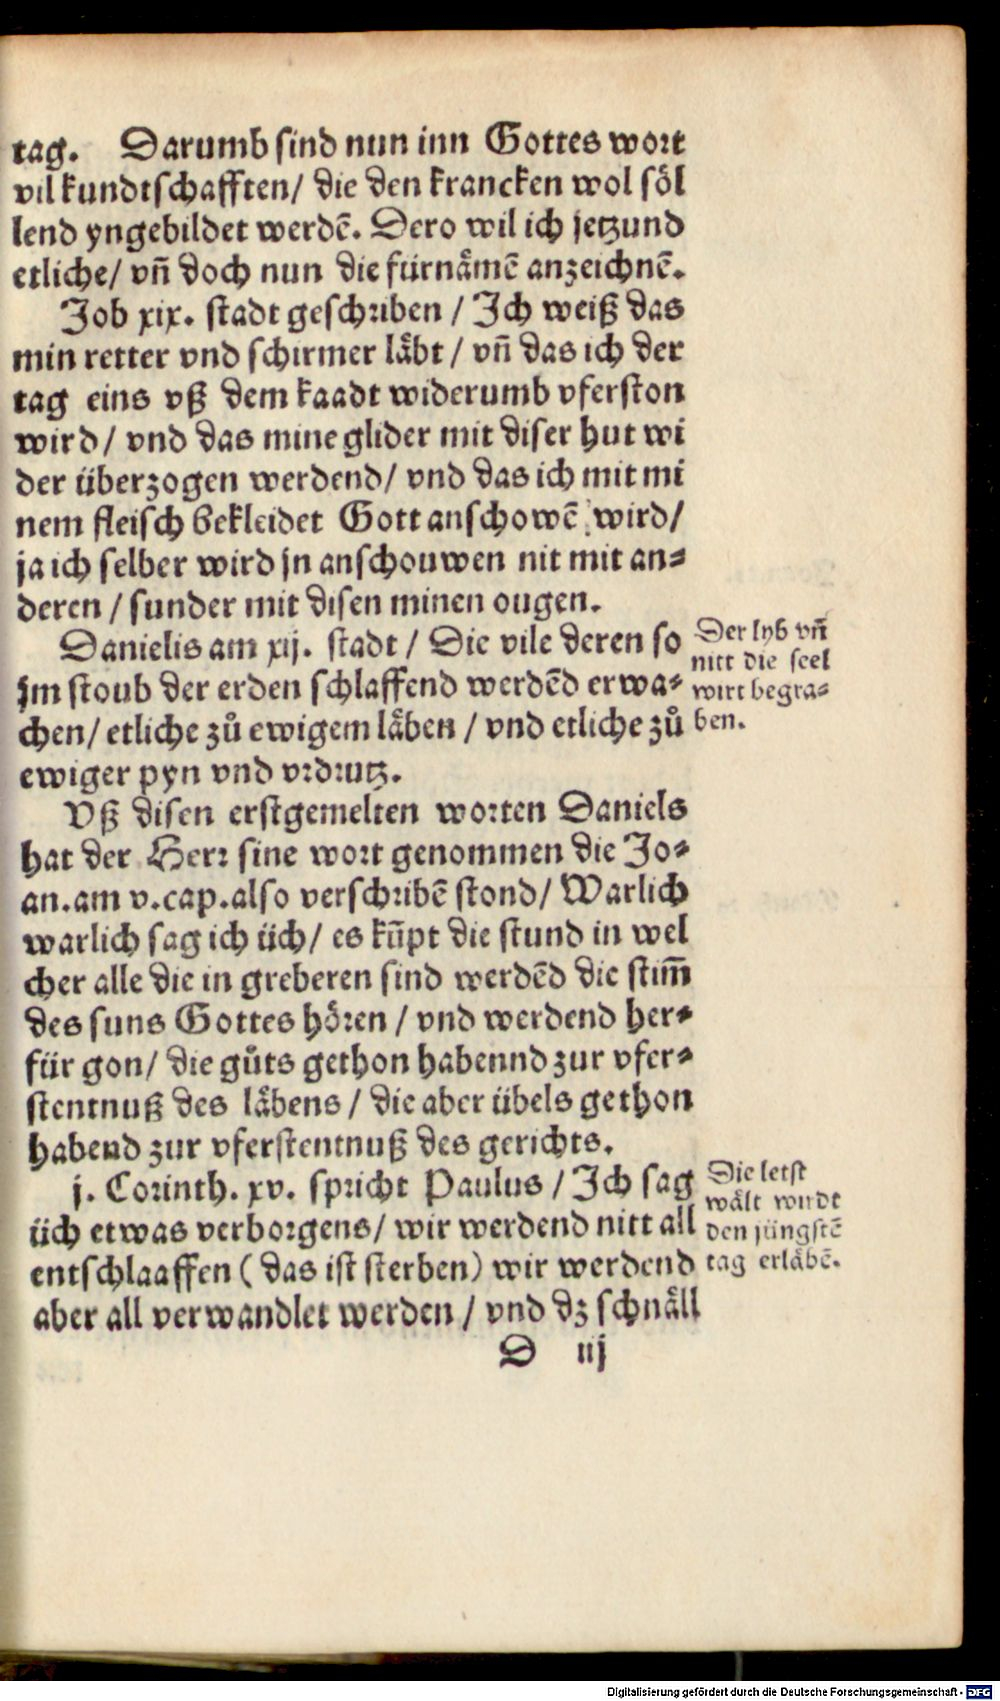 tag. Darumb sind nun inn Gottes wort
vil kundtschafften/ die den krancken wol söl
lend yngebildet werdē. Dero wil ich jetzund
etliche/ vñ doch nun die fürnåmē anzeichnē.
Job xix. stadt geschriben / Ich weiß das
min retter vnd schirmer låbt / vñ das ich der
tag eins vß dem kaadt widerumb vferston
wird/ vnd das mine glider mit diser hut wi
der überzogen werdend/ vnd das ich mit mi
nem fleisch bekleidet Gott anschowē wird/
ja ich selber wird jn anschouwen nit mit an⸗
deren / sunder mit disen minen ougen.
Danielis am xij. stadt / Die vile deren so
jm stoub der erden schlaffend werdēd erwa⸗
chen/ etliche zů ewigem låben / vnd etliche zů
ewiger pyn vnd vrdrutz.
Der lyb vñ
nitt die seel
wirt begra⸗
ben.
Vß disen erstgemelten worten Daniels
hat der Herr sine wort genommen die Jo⸗
an.am v.cap.also verschribē stond/ Warlich
warlich sag ich üch/ es kūpt die stund in wel
cher alle die in greberen sind werdēd die stim̄
des suns Gottes hören / vnd werdend her⸗
für gon/ die gůts gethon habennd zur vfer⸗
stentnuß des låbens / die aber übels gethon
habend zur vferstentnuß des gerichts.
j. Corinth. xv. spricht Paulus / Ich sag
üch etwas verborgens/ wir werdend nitt all
entschlaaffen ( das ist sterben) wir werdend
aber all verwandlet werden / vnd dz schnåll
Die letst
wålt wirdt
den jüngstē
tag erlåbē.
D iij
Digitalisierung gefördert durch die Deutsche Forschungsgemeinschaft - DFG